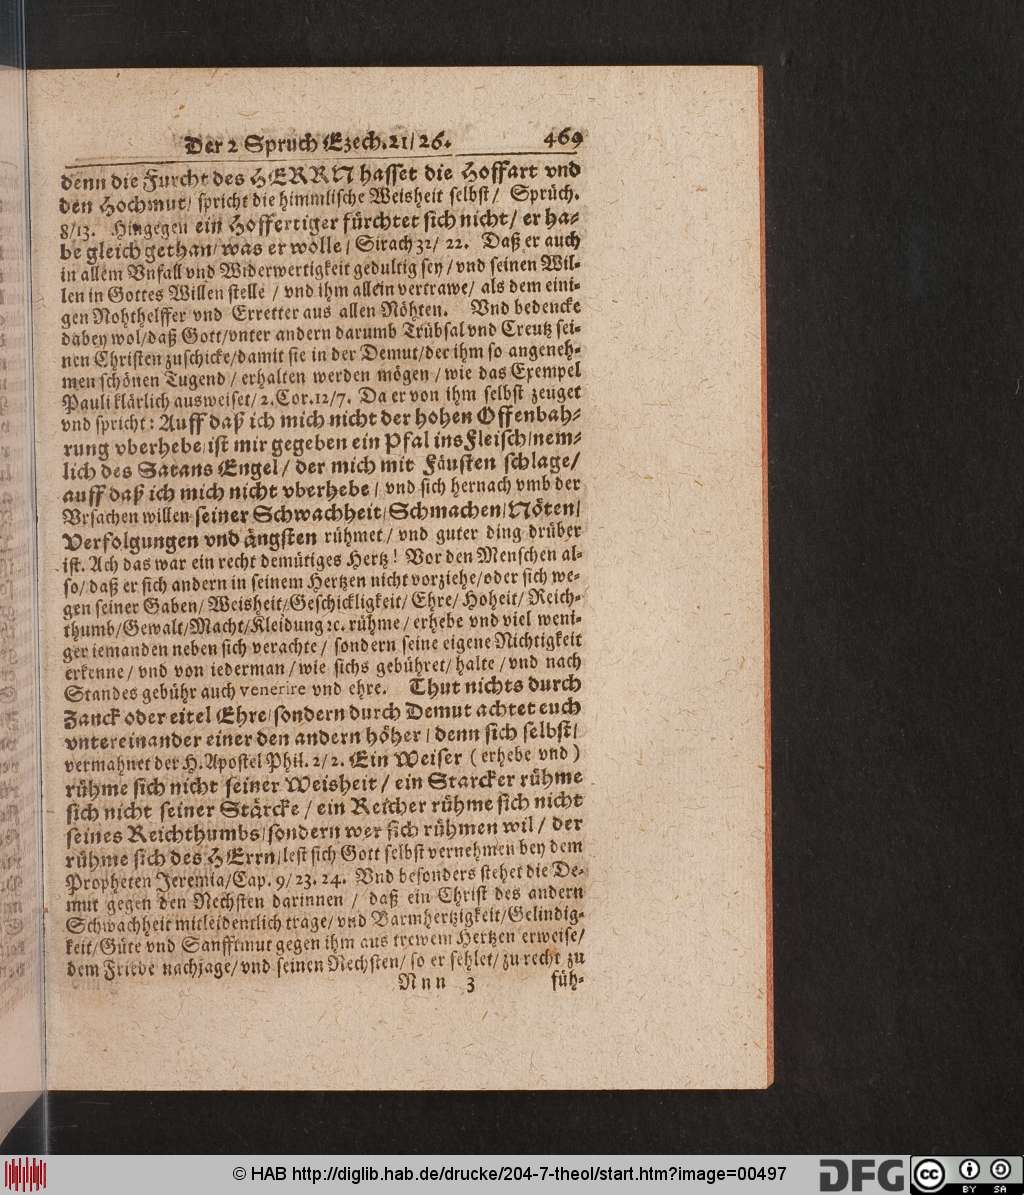 Der 2 Spruch Ezech.21/26. 469
denn die Furcht des HERRN hasset die Hoffart vnd
den Hochmut/ spricht die himmlische Weisheit selbst/ Sprüch.
8/13. Hingegen ein Hoffertiger fürchtet sich nicht/ er ha-
be gleich gethan/ was er wölle/ Sirach 32/ 22. Daß er auch
in allem Vnfall vnd Widerwertigkeit gedultig sey/ vnd seinen Wil-
len in Gottes Willen stelle / vnd ihm allein vertrawe/ als dem eini-
gen Nohthelffer vnd Erretter aus allen Nöhten. Vnd bedencke
dabey wol/daß Gott/vnter andern darumb Trübsal vnd Creutz sei-
nen Christen zuschicke/damit sie in der Demut/der ihm so angeneh-
men schönen Tugend / erhalten werden mögen / wie das Exempel
Pauli klärlich ausweiset/ 2.Cor.12/7. Da er von ihm selbst zeuget
vnd spricht: Auff daß ich mich nicht der hohen Offenbah-
rung vberhebe/ ist mir gegeben ein Pfal ins Fleisch/ nem-
lich des Satans Engel/ der mich mit Fäusten schlage/
auff daß ich mich nicht vberhebe/ vnd sich hernach vmb der
Vrsachen willen seiner Schwachheit/ Schmachen/ Nöten/
Verfolgungen vnd ängsten rühmet/ vnd guter ding drüber
ist. Ach das war ein recht demütiges Hertz! Vor den Menschen al-
so/ daß er sich andern in seinem Hertzen nicht vorziehe/oder sich we-
gen seiner Gaben/ Weisheit/Geschickligkeit/ Ehre/ Hoheit/ Reich-
thumb/Gewalt/Macht/Kleidung ꝛc. rühme/ erhebe vnd viel weni-
ger iemanden neben sich verachte/ sondern seine eigene Nichtigkeit
erkenne/ vnd von iederman / wie sichs gebühret/ halte / vnd nach
Standes gebühr auch venerire vnd ehre. Thut nichts durch
Zanck oder eitel Ehre/ sondern durch Demut achtet euch
vntereinander einer den andern höher/ denn sich selbst/
vermahnet der H. Apostel Phil. 2/2. Ein Weiser (erhebe vnd)
rühme sich nicht seiner Weisheit / ein Starcker rühme
sich nicht seiner Stärcke / ein Reicher rühme sich nicht
seines Reichthumbs/ sondern wer sich rühmen wil/ der
rühme sich des HErrn/ lest sich Gott selbst vernehmen bey dem
Propheten Jeremia/Cap. 9/ 23. 24. Vnd besonders stehet die De-
mut gegen den Nechsten darinnen / daß ein Christ des andern
Schwachheit mitleidentlich trage/ vnd Barmhertzigkeit/Gelindig-
keit/Güte vnd Sanfftmut gegen ihm aus trewem Hertzen erweise/
dem Friede nachjage/ vnd seinen Nechsten/ so er fehlet/ zu recht zu
Nnn 3 füh-
© HAB http://diglib.hab.de/drucke/204-7-theol/start.htm?image=00497
DFG
cc BY SA